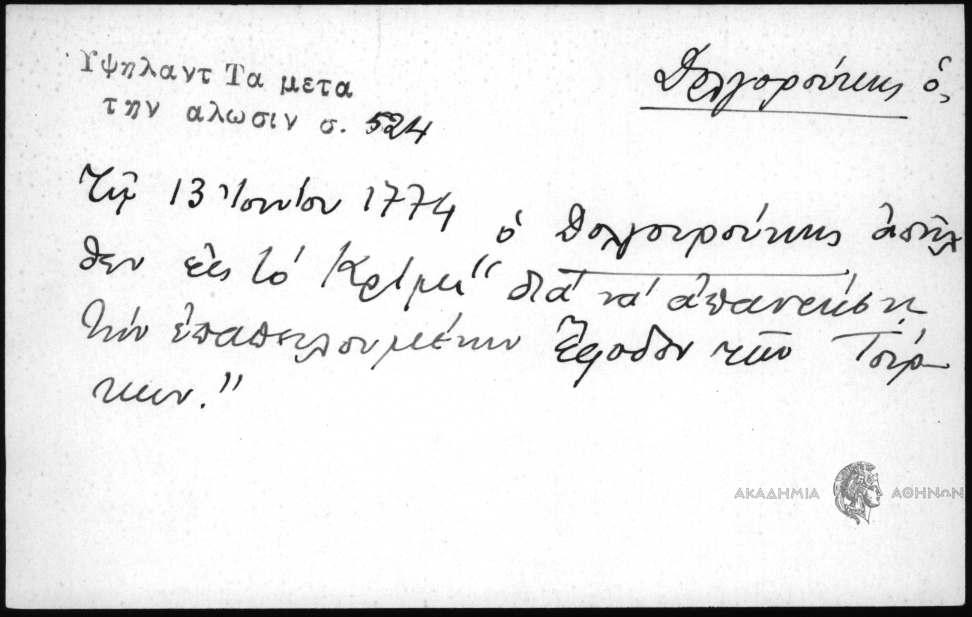 Υψηλαντ Τα μετα
την αλωσιν σ. 524
Δολγορούκης ὁ,
Τῇ 13 Ἰουνίου 1774 ὁ Δολγορούκης ἀπῆλ
θεν εἰς τὸ Κρίμι" διὰ νὰ ἀπαντήσῃ
τὴν ἐπαπειλουμένην ἔφοδον τῶν Τούρ
κων."
ΑΚΑΔΗΜΙΑ ΑΘΗΝΩΝ